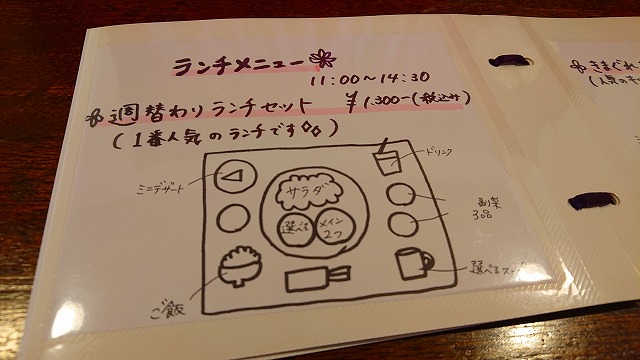 ランチメニュー
11:00〜14:30
週替わりランチセット ¥1,300-(税込み)
(1番人気のランチです)
ミニデザート
サラダ
選べる
メイン
2つ
ドリンク
副菜
3品
ご飯
選べるスープ
きまぐれ
(人気の